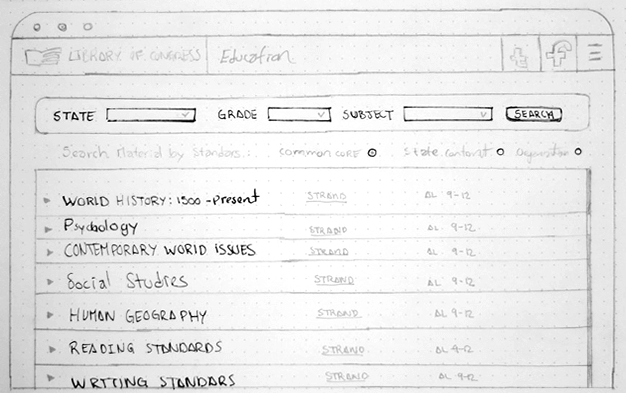 LIBRARY OF CONGRESS Education
STATE GRADE SUBJECT SEARCH
Search Material by Standars: common CORE State content Organisation
WORLD HISTORY: 1500 - Present STRAND AL 9-12
Psychology STRAND AL 9-12
CONTEMPORARY WORLD ISSUES STRAND AL 9-12
Social Studies STRAND AL 9-12
HUMAN GEOGRAPHY STRAND AL 9-12
READING STANDARDS STRAND AL 9-12
WRITING STANDARS STRAND AL 9-12